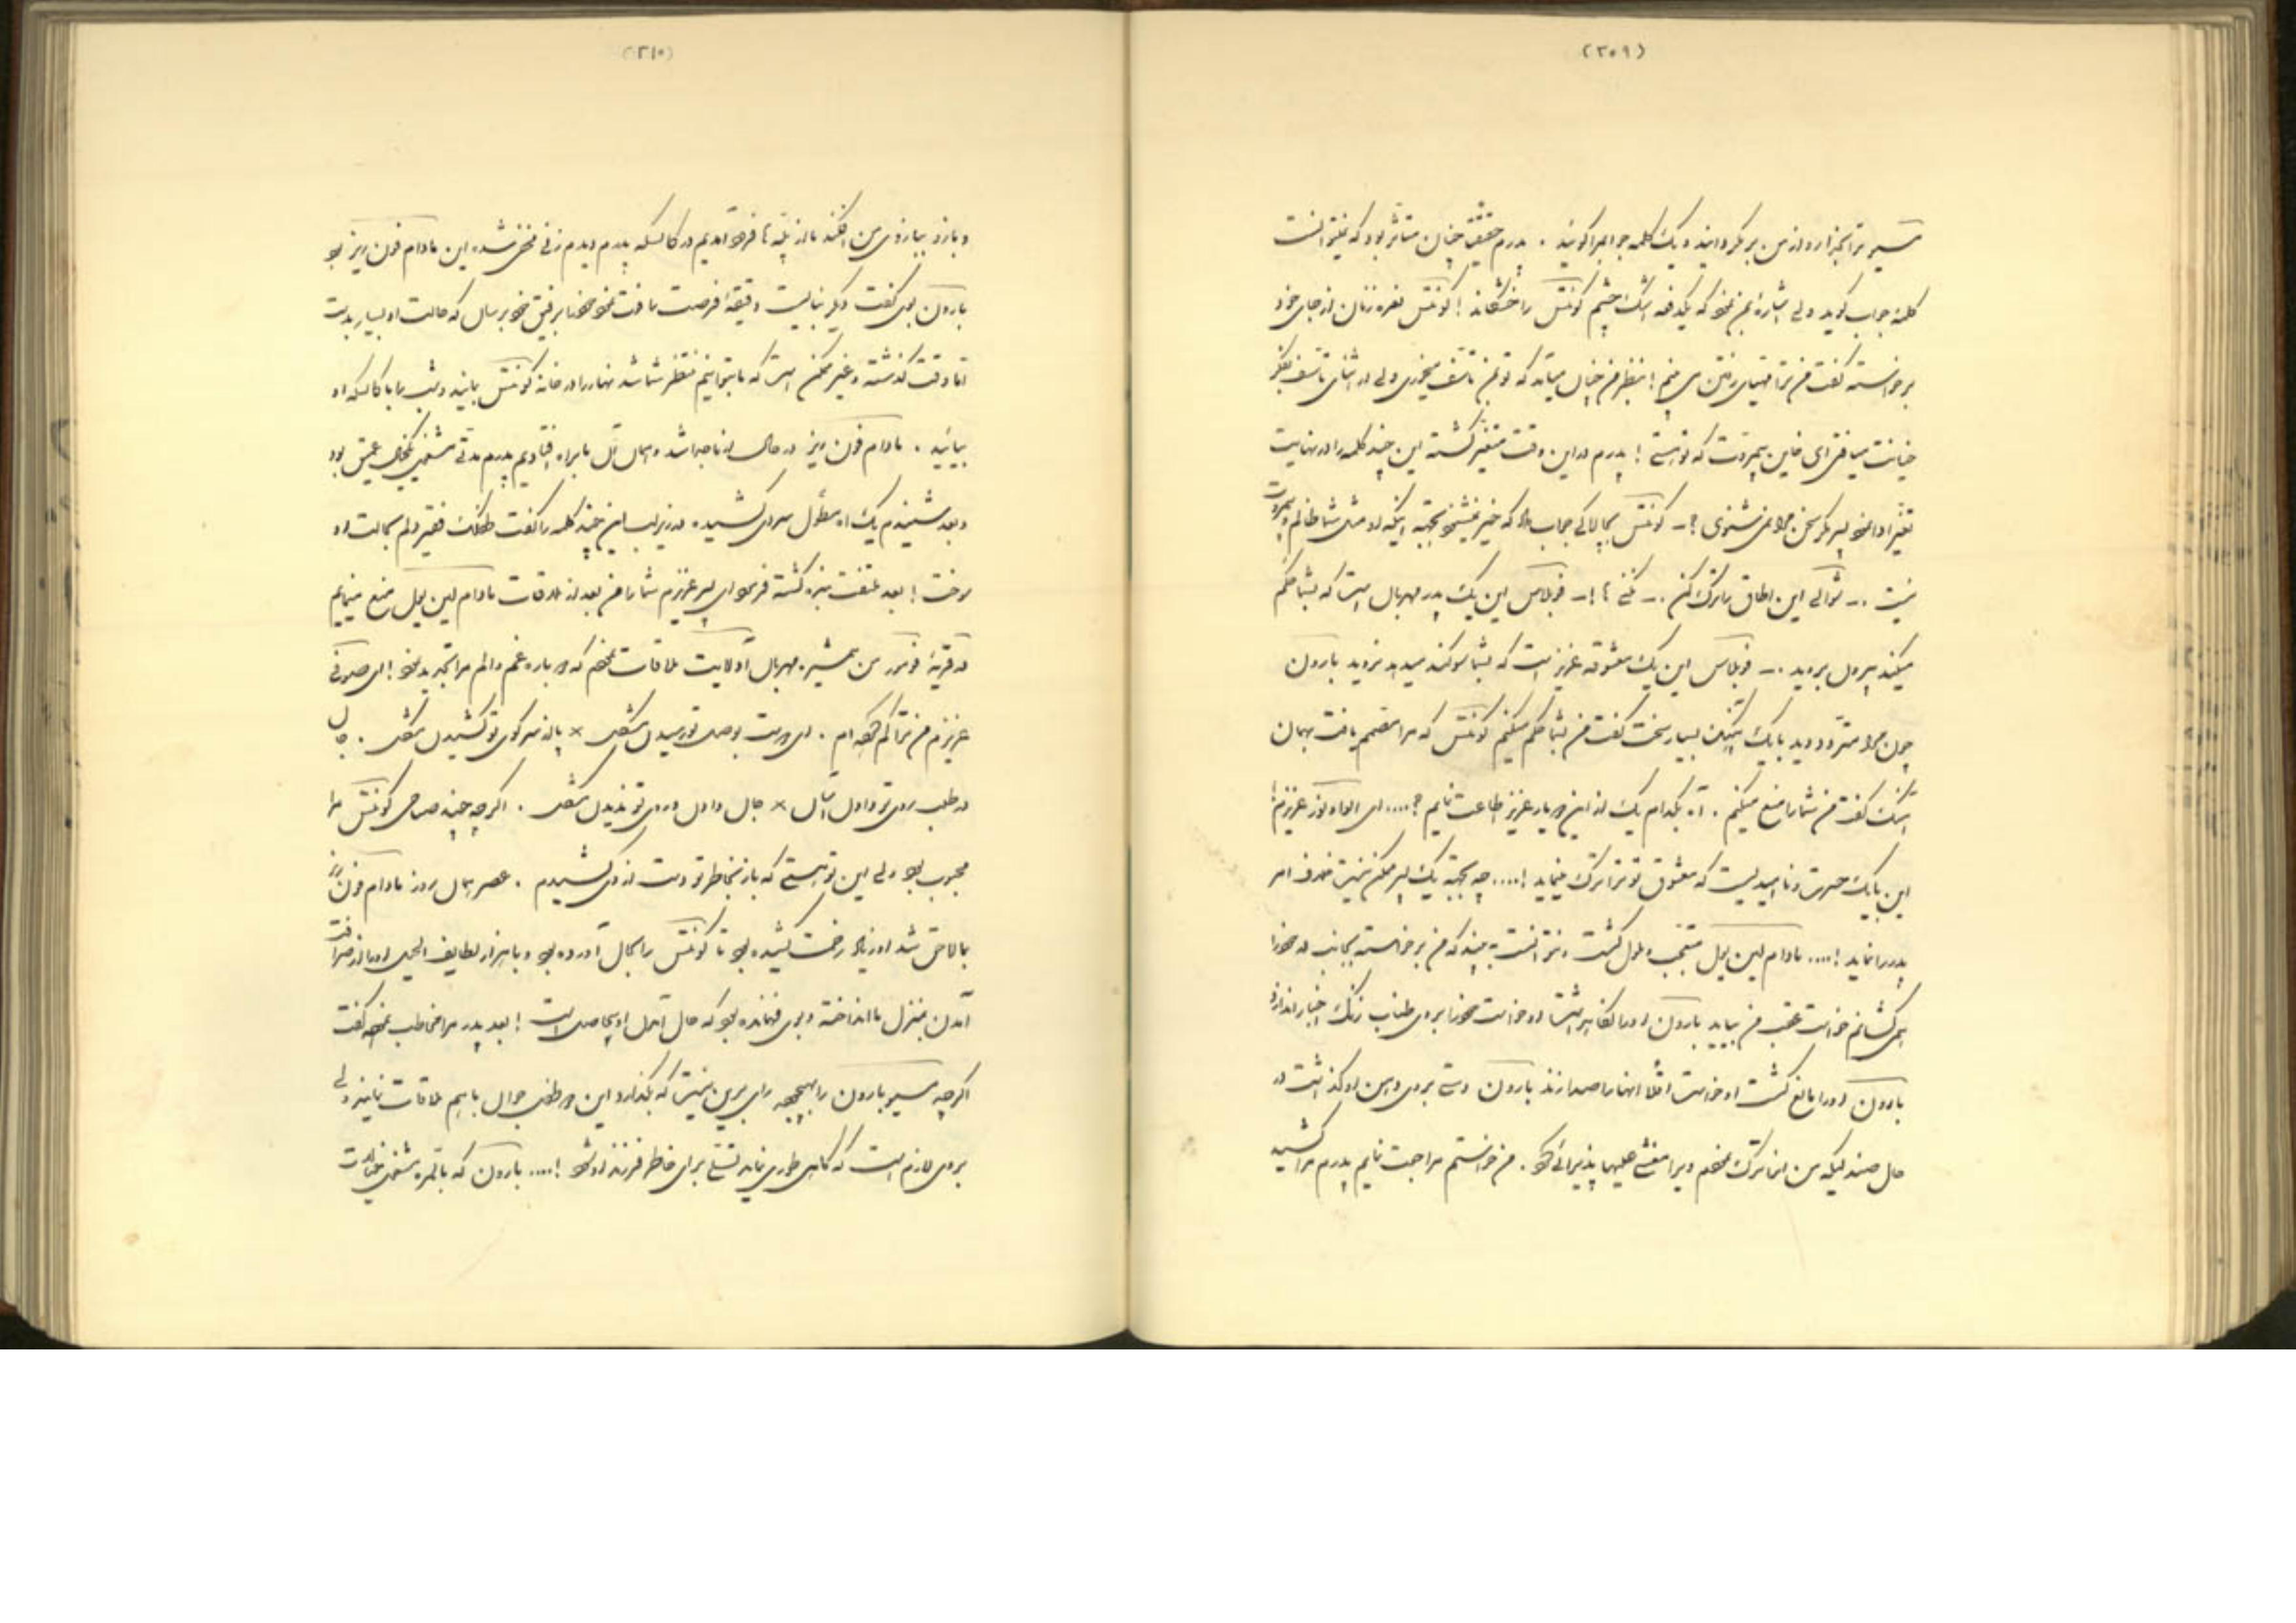 (۲۰۹)
مسیو ترا بگذارد از من برگردانید و یک کلمه جوابم را گوئید . پدرم حقیقة چنان متاثر بود که نمیتوانست
کلمهٔ جواب گوید ولی اشارهٔ بمن نمود که یکدفعه اشک چشم کونتس را خشکاند ! کونتس نعره زنان از جای خود
برخواسته گفت من ترا مهیای رفتن می بینم ! بنظر من چنان میاید که تو بمن تاسف میخوری ولی در اثنای تاسف بفکر
خیانت میافتی ای خاین بیمروت که تو هستی ! پدرم در این وقت متغیر گشته این چند کلمه را در نهایت
تغیر ادا نمود پسر مگر سخن مرا نمی شنوی ؟ـ کونتس بچالاکی جواب داد که خیر نمیشنود بجهته اینکه او مثل شما ظالم و بیمروت
نیست .ـ شوالی این اطاق را ترک کن .ـ ـ فوبلاس این یک پدر مهربان است که بشما حکم
میکند بیرون بروید .ـ فوبلاس این یک معشوقه عزیز است که بشما سوگند میدهد نروید بارون
چون مرا متردد دید با یک بسیار سخت گفت من بشما حکم میکنم کونتس که مرا مصمم یافت بهمان
گفت من شما را منع میکنم . آه بکدام یک از این دو یار عزیز اطاعت نمایم ؟.... ای الئونور عزیزم !
این با یک حسرت و ناامیدیست که معشوق تو ترا ترک مینماید !.... چه بجهته یک پسر ممکن نیست خلاف امر
پدر را نماید !.... مادام لین یول متعجب و ملول گشت و نتوانست ببیند که من برخواسته بجانب در خود را
می کشانم خواست عقب من بیاید بارون او را نگاهداشت او خواست خود را بروی طناب زنگ اخبار اندازد
بارون او را مانع گشت او خواست اقلا انها را صدا زند بارون دستی بروی دهن او گذاشت در
حال صندلیکه من انرا ترک نمودم ویرا مغشی علیها پذیرائی کرد . من خواستم مراجعت نمایم پدرم مرا کشید
(۲۱۰)
و بازو ببازوی من افکند ما از پلّه ها فرود آمدیم در کالسکه پدرم دیدم زنی مخفی شده این مادام فون رزیر بود
بارون بوی گفت دیگر نبایست دقیقهٔ فرصت یافت خود را برفیق خود برسان که حالت او بسیار بد است
اما وقت گذشته و غیر ممکن است که ما بتوانیم منتظر شما شد نهار را در خانه کونتس بمانید و شب را با کالسکه او
بیائید . مادام فون رزیر در حال از ما جدا شد و همان آن ما براه افتادیم پدرم مدتی مشغول تفکر عمیق بود
و بعد شنیدم یک آه مطول سردی کشیده در زیر لب این چند کلمه را گفت طفلک فقیر دلم بحالت او
سوخت ! بعد ملتفت بنده گشته فرمود ای پسر عزیزم شما را من بعد از ملاقات مادام لین یول منع مینمایم
در قریهٔ من همشیره مهربان آدلایت ملاقات نمودم که دوباره غم و الم مرا تجدید نمود ! ای صوفی
عزیزم من ترا گم کرده ام . ای دوست بوصل تو رسیدن مشکل × پا از سر کوی تو کشیدن مشکل . چان
در طلب روی تو دادن آسان × جان دادن و روی تو ندیدن مشکل . اگر چه چند صباحی کونتس مرا
محبوب بود ولی این تو هستی که باز بخاطر تو دست از وی کشیدم . عصر همان روز مادام فون رزیر
بما لاحق شد او زیاد زحمت کشیده بود تا کونتس را بحال آورده بود و با هزار لطایف الحیل او را از صرافت
آمدن بمنزل ما انداخته و بوی فهمانده بود که حال آمدن او بیحاصل است ! بعد پدر مرا مخاطب نموده گفت
اگر چه مسیو بارون را بهیچوجه رای بر این نیست که بگذارد این دو طفل جوان با هم ملاقات نمایند ولی
بروی لازم است که گاهی طوری نماید تسلی برای خاطر فرزند او شود !.... بارون که بالمره مشغول خیالات